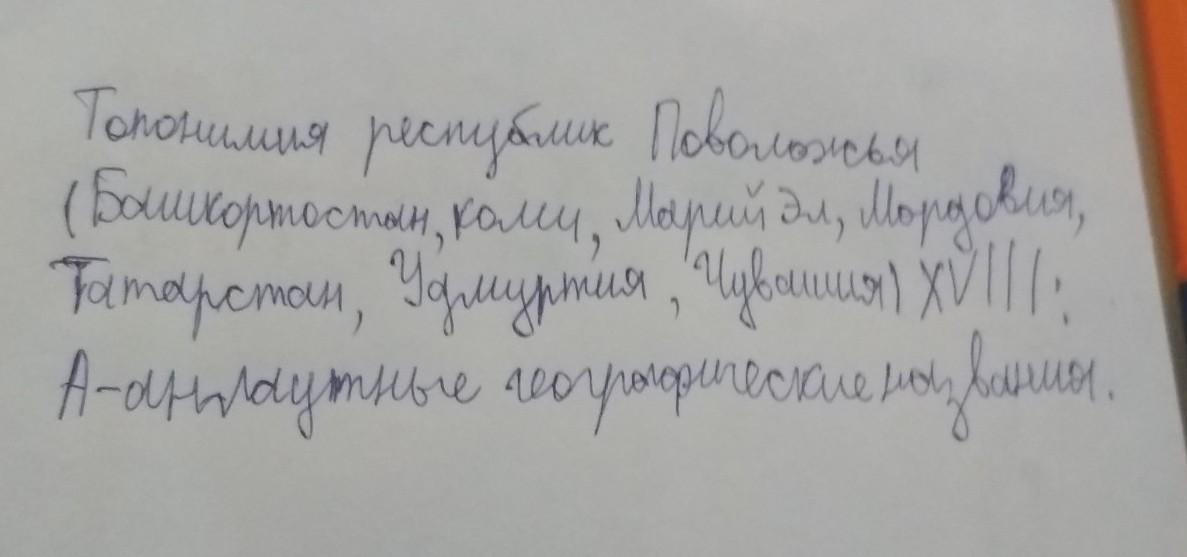 Топонимия республик Поволожья
(Башкортостан, коми, Марий Эл, Мордовия,
Татарстан, Удмуртия, Чувашия) XVIII:
А-анлаутные географические названия.